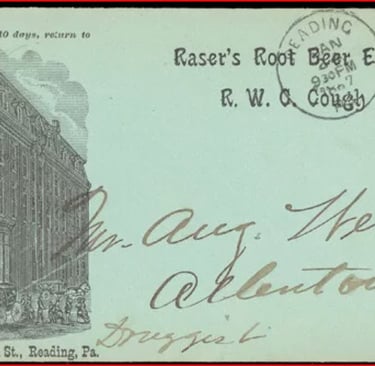 10 days, return to
Raser's Root Beer E
R. W. C. Cough
READING
JAN
930PM
PA
Mr. Aug. We
Allento
Druggist
St., Reading, Pa.